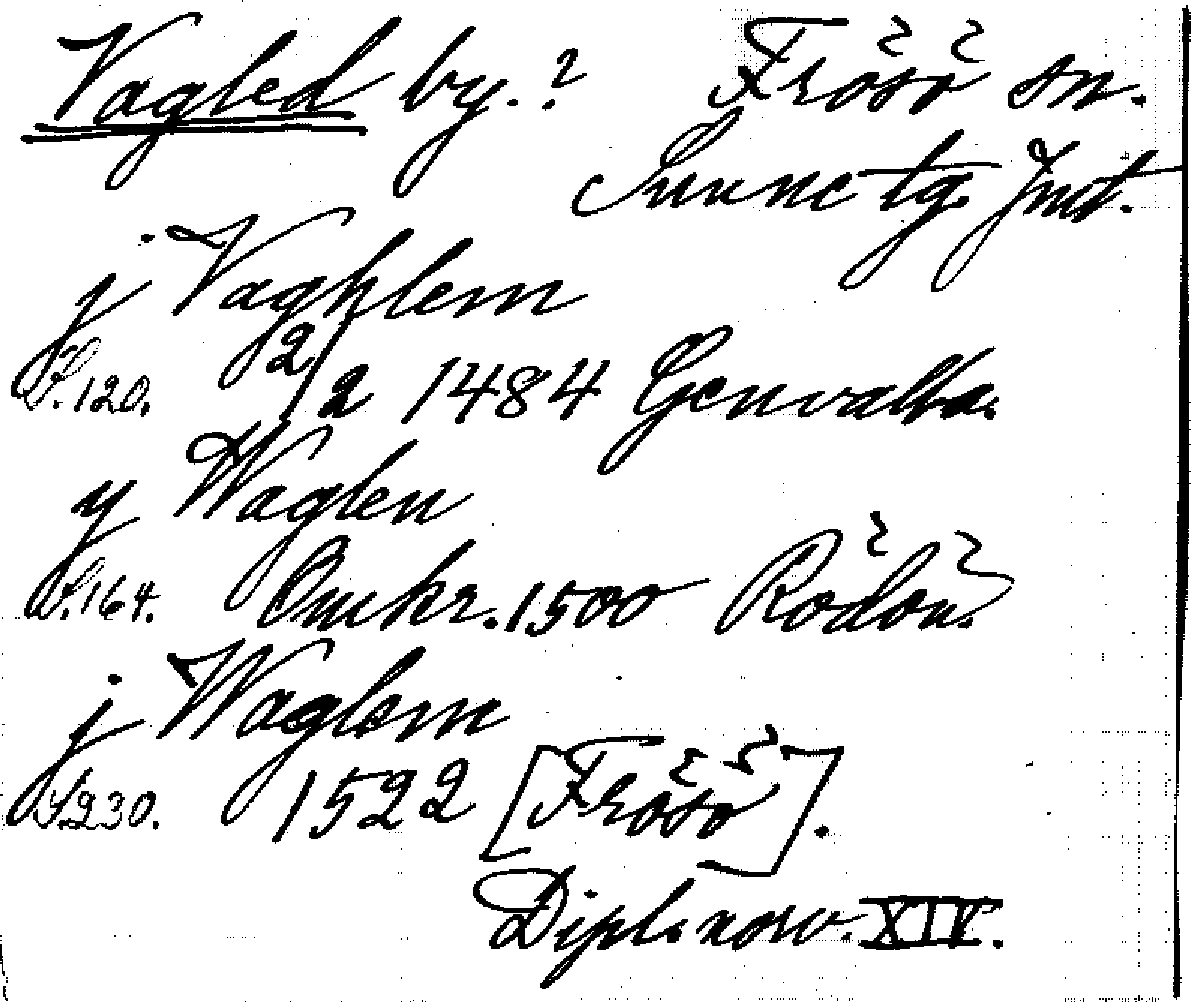 Vagled by.? Frösö sn.
Sunne tg. Jmt.
j Vaghlem
S. 120. 2/2 1484 Genvalla.
y Waglen
S. 164. Omkr. 1500 Rödön.
j Waglem
S. 230. 1522 [Frösö].
Dipl. norv. XIV.